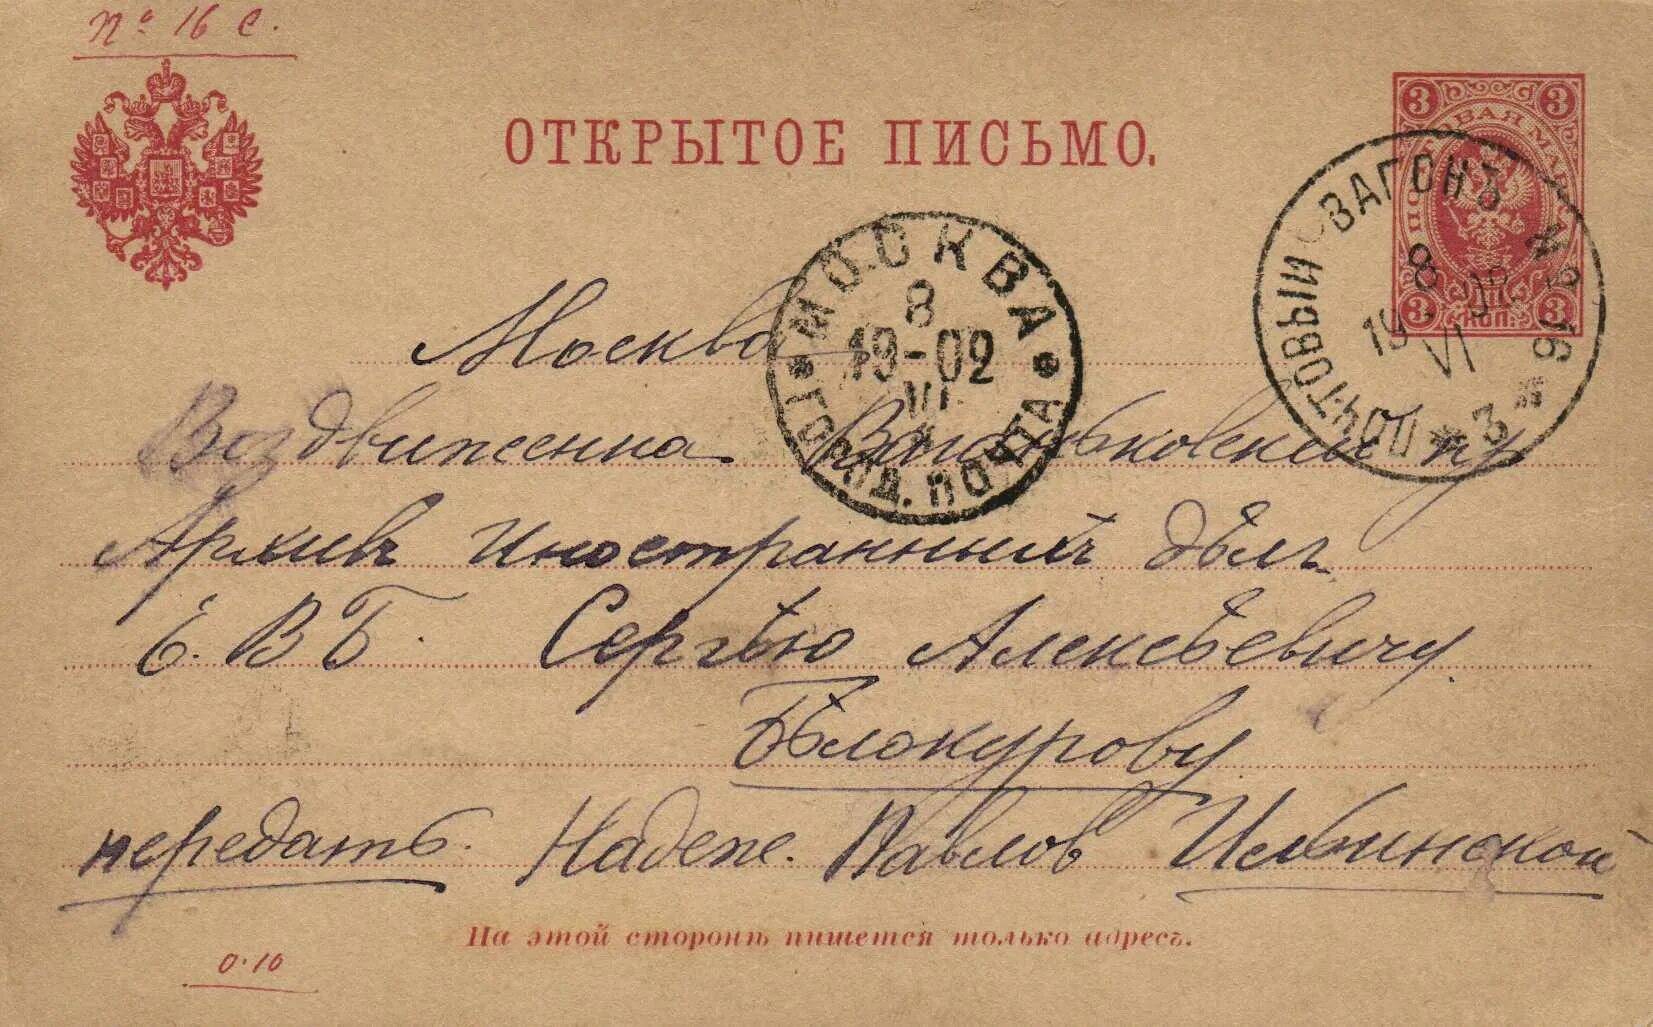 № 16 с.
ОТКРЫТОЕ ПИСЬМО.
3 3
ПОЧТОВАЯ МАРКА
3 КОП. 3
ПОЧТОВЫЙ ВАГОНЪ № 16
8
19 02
VI
* 3 *
МОСКВА
8
19-02
VI
ГОРОД. ПОЧТА
Москва
Воздвиженка Ваганьковский пр
Архивъ Иностранныхъ дѣлъ
Е. В Б. Сергѣю Алексѣевичу
Бѣлокурову
передать Надеже. Павлов Ильинской
На этой сторонѣ пишется только адресъ.
0.10